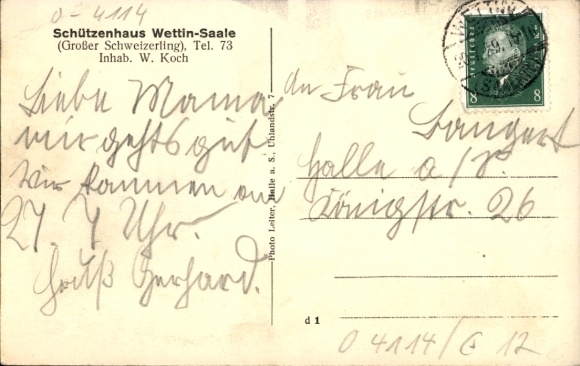 0-4114
Schützenhaus Wettin-Saale
(Großer Schweizerling), Tel. 73
Inhab. W. Koch
Liebe Mama
mir gehts gut
Wir kommen am
27 7 Uhr.
Gruß Gerhard.
Photo Leiter, Halle a. S., Uhlandstr. 7
8 8
An Frau
Bangert
Halle a/S.
Königstr. 26
d 1
0 4114/E 12